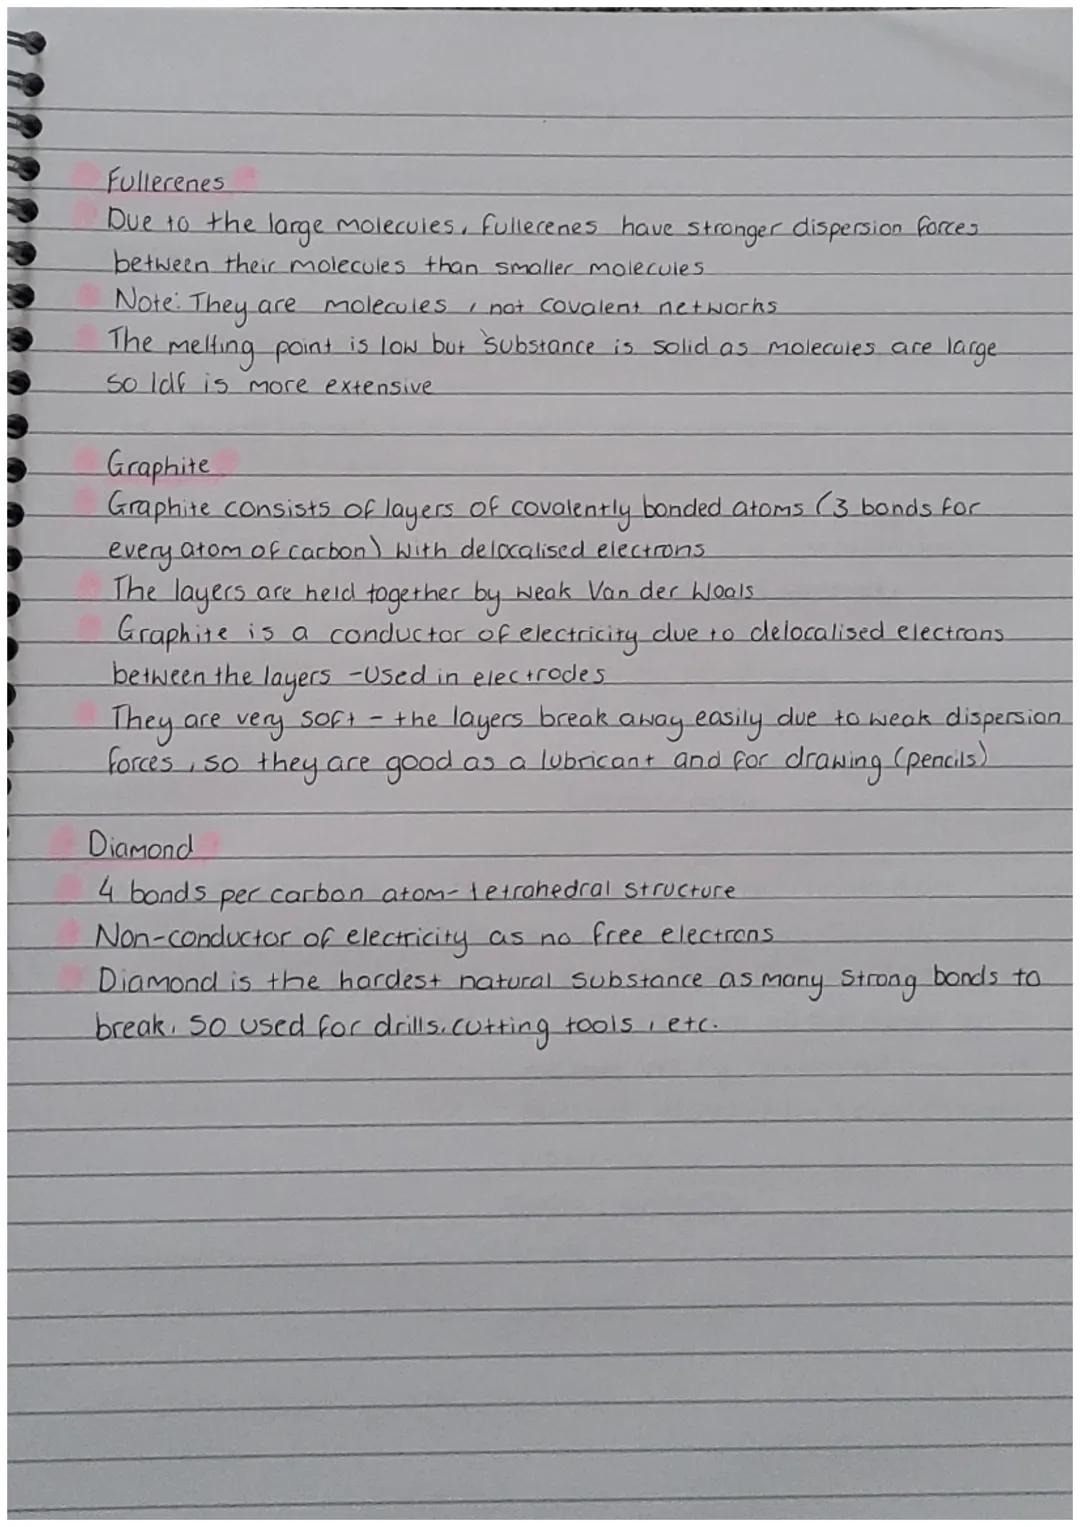 Fullerenes
Due to the large molecules, fullerenes have stronger dispersion forces
between their molecules than smaller molecules
Note: They are molecules, not covalent networks
The melting point is low but substance is solid as molecules are large
so ldf is more extensive
Graphite
Graphite consists of layers of covalently bonded atoms (3 bonds for
every atom of carbon) with delocalised electrons
The layers are held together by weak Van der Waals
Graphite is a conductor of electricity due to delocalised electrons
between the layers - Used in electrodes
They are very soft - the layers break away easily due to weak dispersion
forces, so they are good as a lubricant and for drawing (pencils)
Diamond
4 bonds per carbon atom - tetrahedral structure
Non-conductor of electricity as no free electrons
Diamond is the hardest natural substance as many strong bonds to
break, so used for drills, cutting tools, etc.